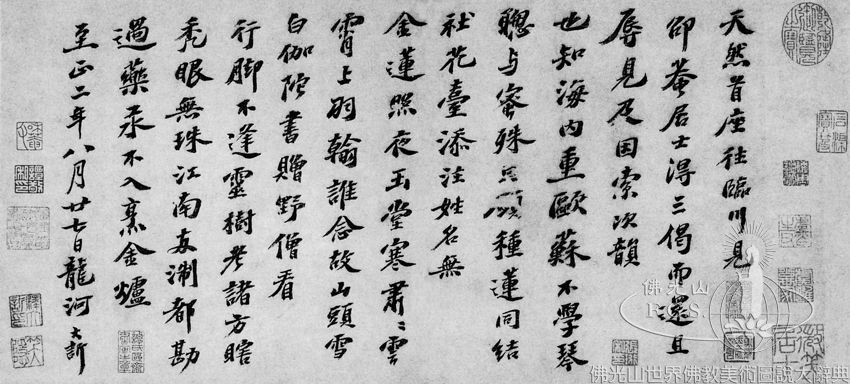 天然首座往臨川見
卲菴居士得三偈而還且
辱見及因索次韻
也知海內重歐蘇不學琴
聰与蜜殊種蓮同結
社花臺添注姓名無
金蓮照夜玉堂寒肅〻雲
霄上羽翰誰念故山頭雪
白伽陀書贈野僧看
行脚不逢靈樹老諸方瞎
秃眼無珠江南淛都勘
過藥汞不入烹金爐
至正二年八月廿七日龍河大訢
佛光山
佛光山世界佛教美術圖說大辭典